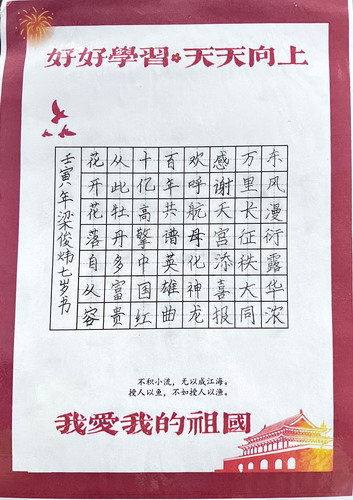 好好學習·天天向上
东风漫衍露华浓
万里长征秩大同
感谢天宫添喜报
欢呼航母化神龙
百年共谱英雄曲
十亿高擎中国红
从此牡丹多富贵
花开花落自从容
壬寅年梁俊炜七岁书
不积小流，无以成江海。
授人以鱼，不如授人以渔。
我愛我的祖國